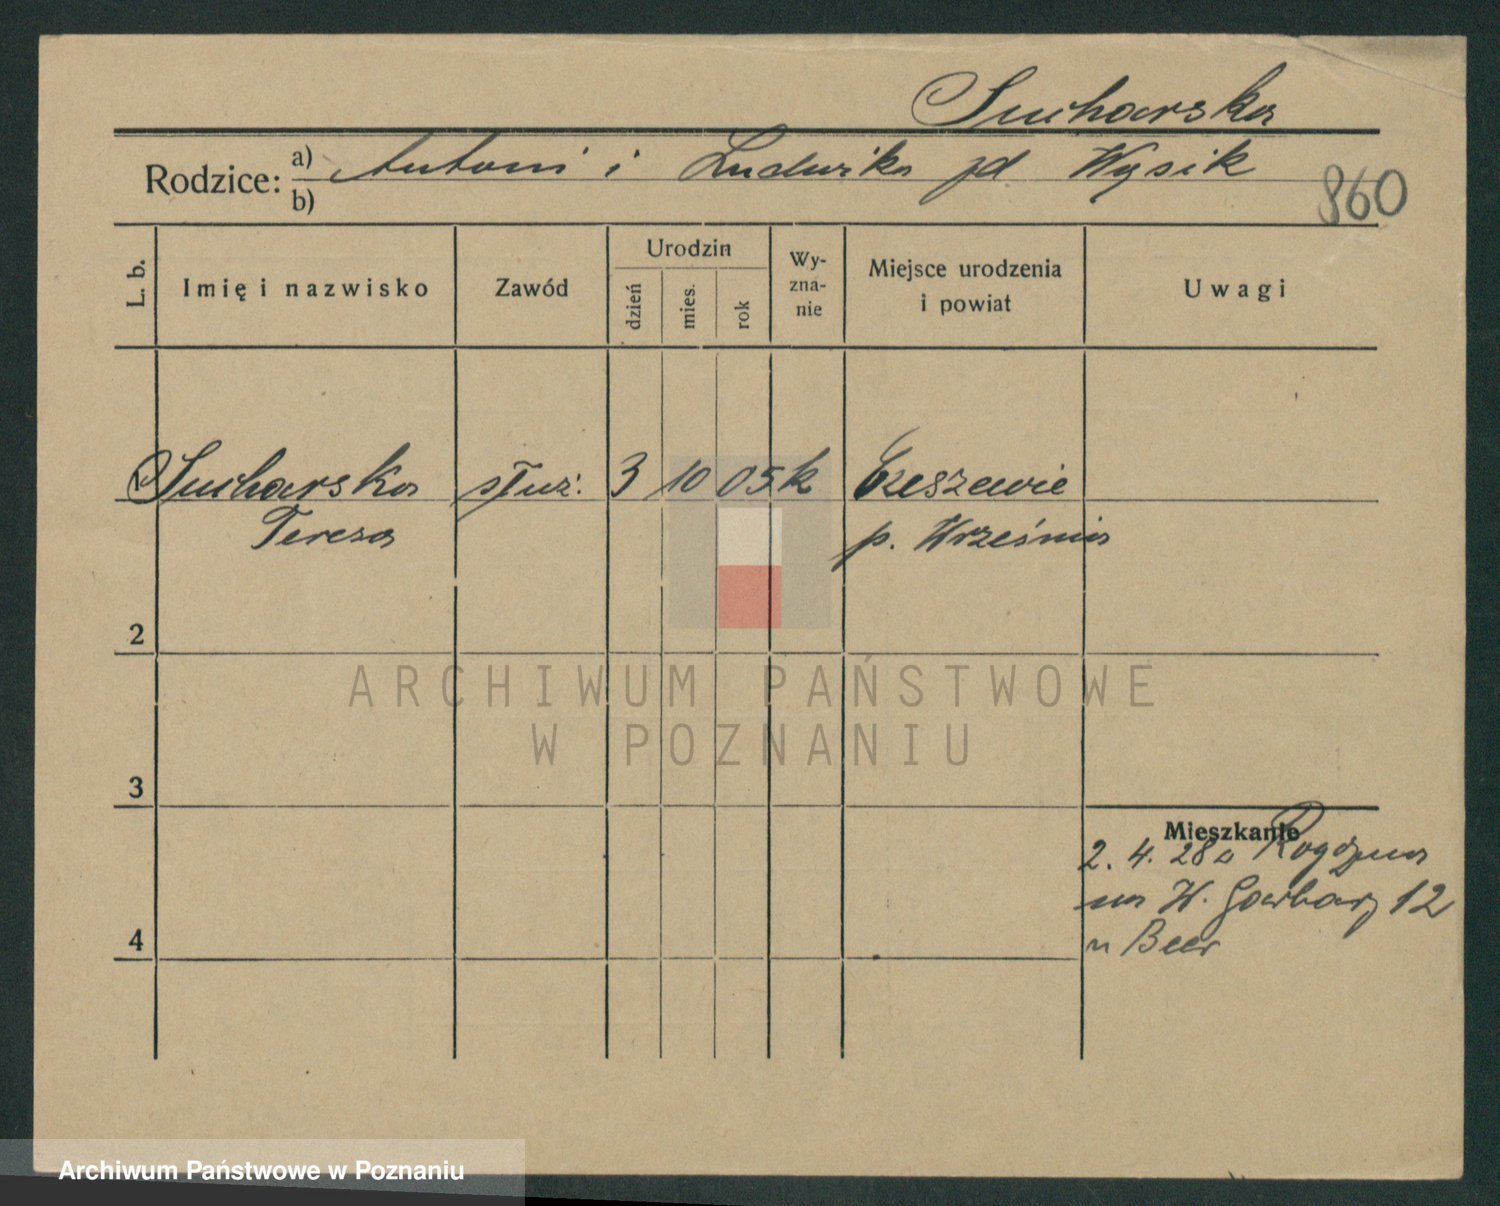 Sucharska
Rodzice: a) Antoni i Ludwika zd Wysik
b)
860
L. b.
Imię i nazwisko
Zawód
Urodzin
dzień
mies.
rok
Wy-
zna-
nie
Miejsce urodzenia
i powiat
Uwagi
1 Sucharska służ. 3 10 05 k Czeszewie
Teresa p. Września
2
3
4
Mieszkanie
2. 4. 28 a Rogoźna
na W. Garbary 12
u Beer
ARCHIWUM PAŃSTWOWE
W POZNANIU
Archiwum Państwowe w Poznaniu